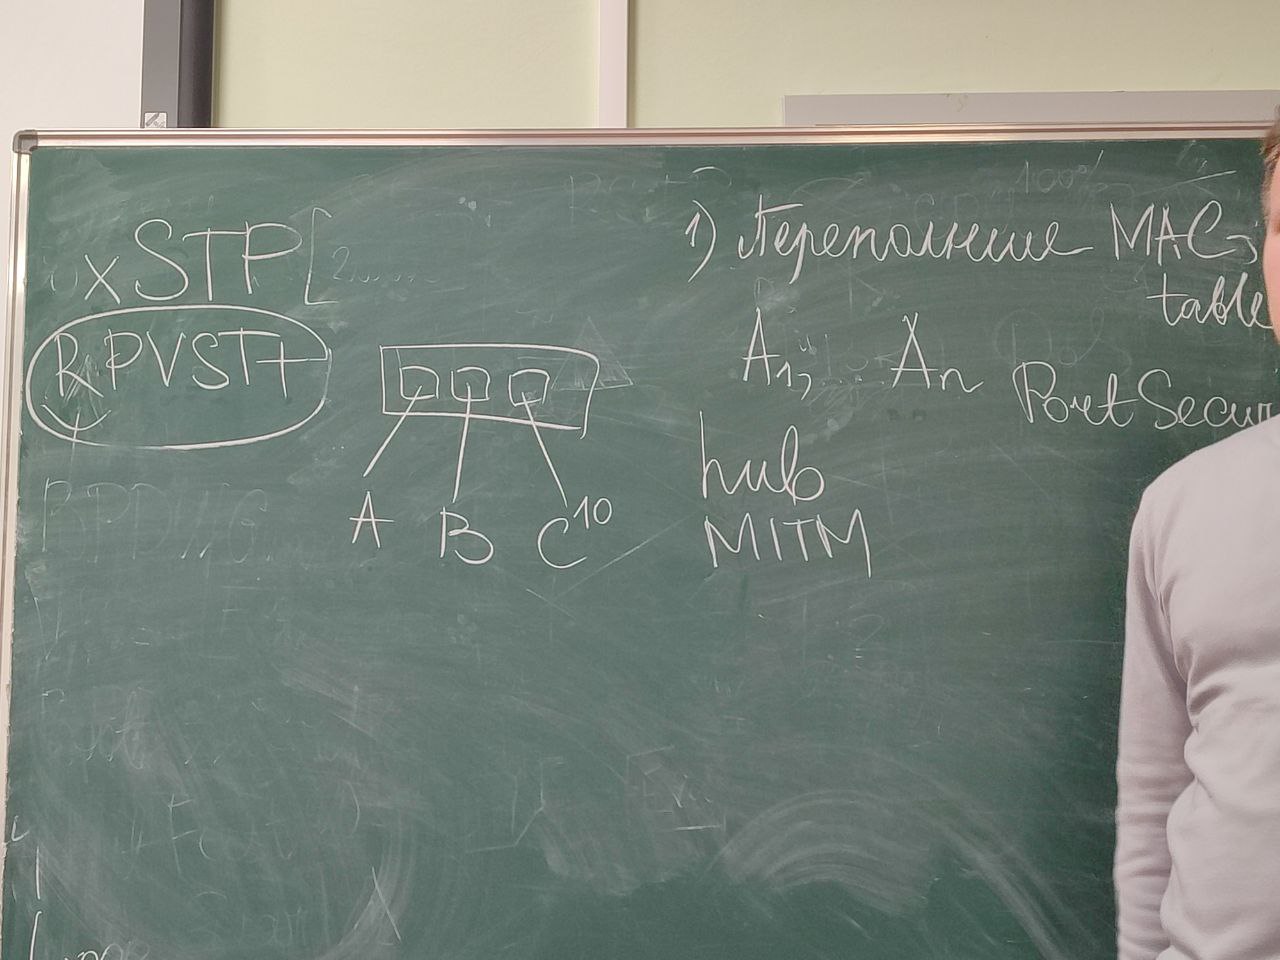 xSTP[
RPVST+
A B C¹⁰
1) Переполнение MAC-
table
A₁, ... Aₙ
Port Secur
hub
MITM